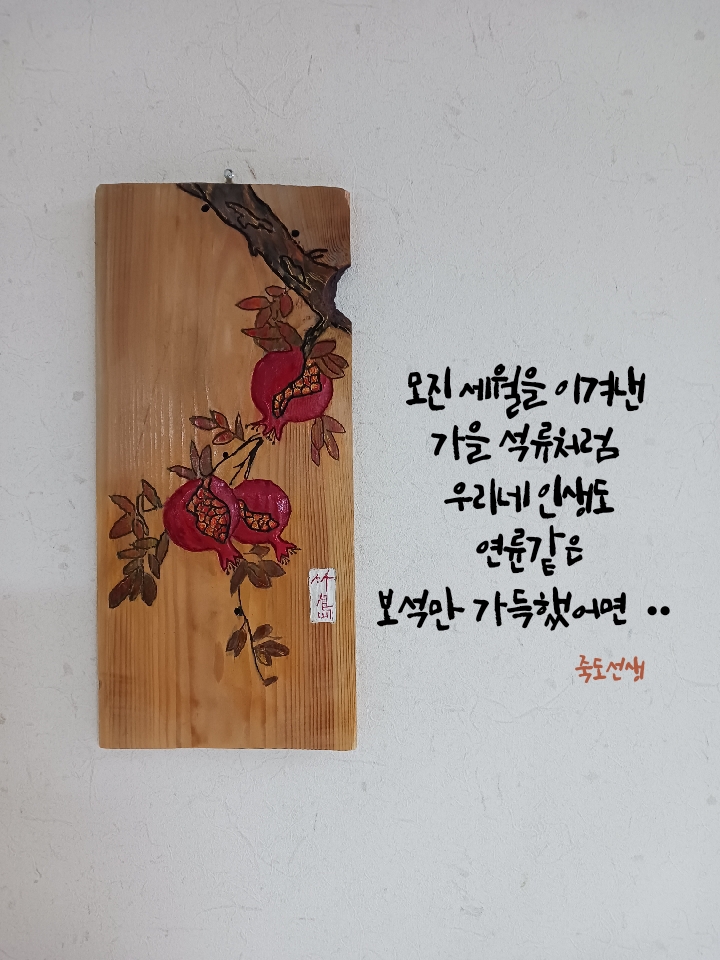 모진 세월을 이겨낸
가을 석류처럼
우리네 인생도
연륜같은
보석만 가득했으면 ..
죽도선생